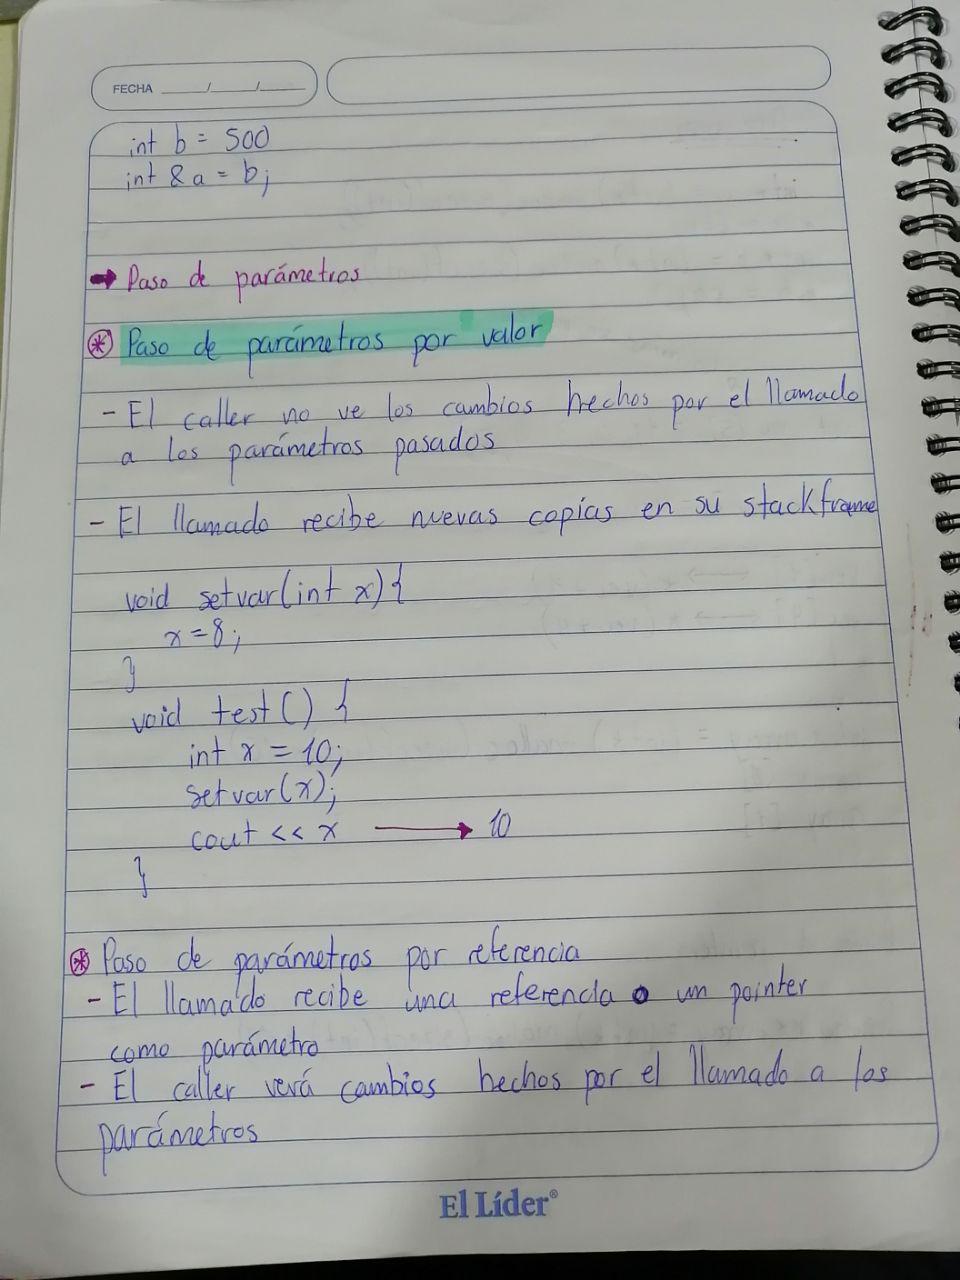 FECHA ____/____/____
int b = 500
int &a = b;
→ Paso de parámetros
* Paso de parámetros por valor
- El caller no ve los cambios hechos por el llamado
a los parámetros pasados
- El llamado recibe nuevas copias en su stackframe
void setvar(int x){
x=8;
}
void test() {
int x = 10;
setvar(x);
cout << x → 10
}
* Paso de parámetros por referencia
- El llamado recibe una referencia o un pointer
como parámetro
- El caller verá cambios hechos por el llamado a los
parámetros
El Líder®